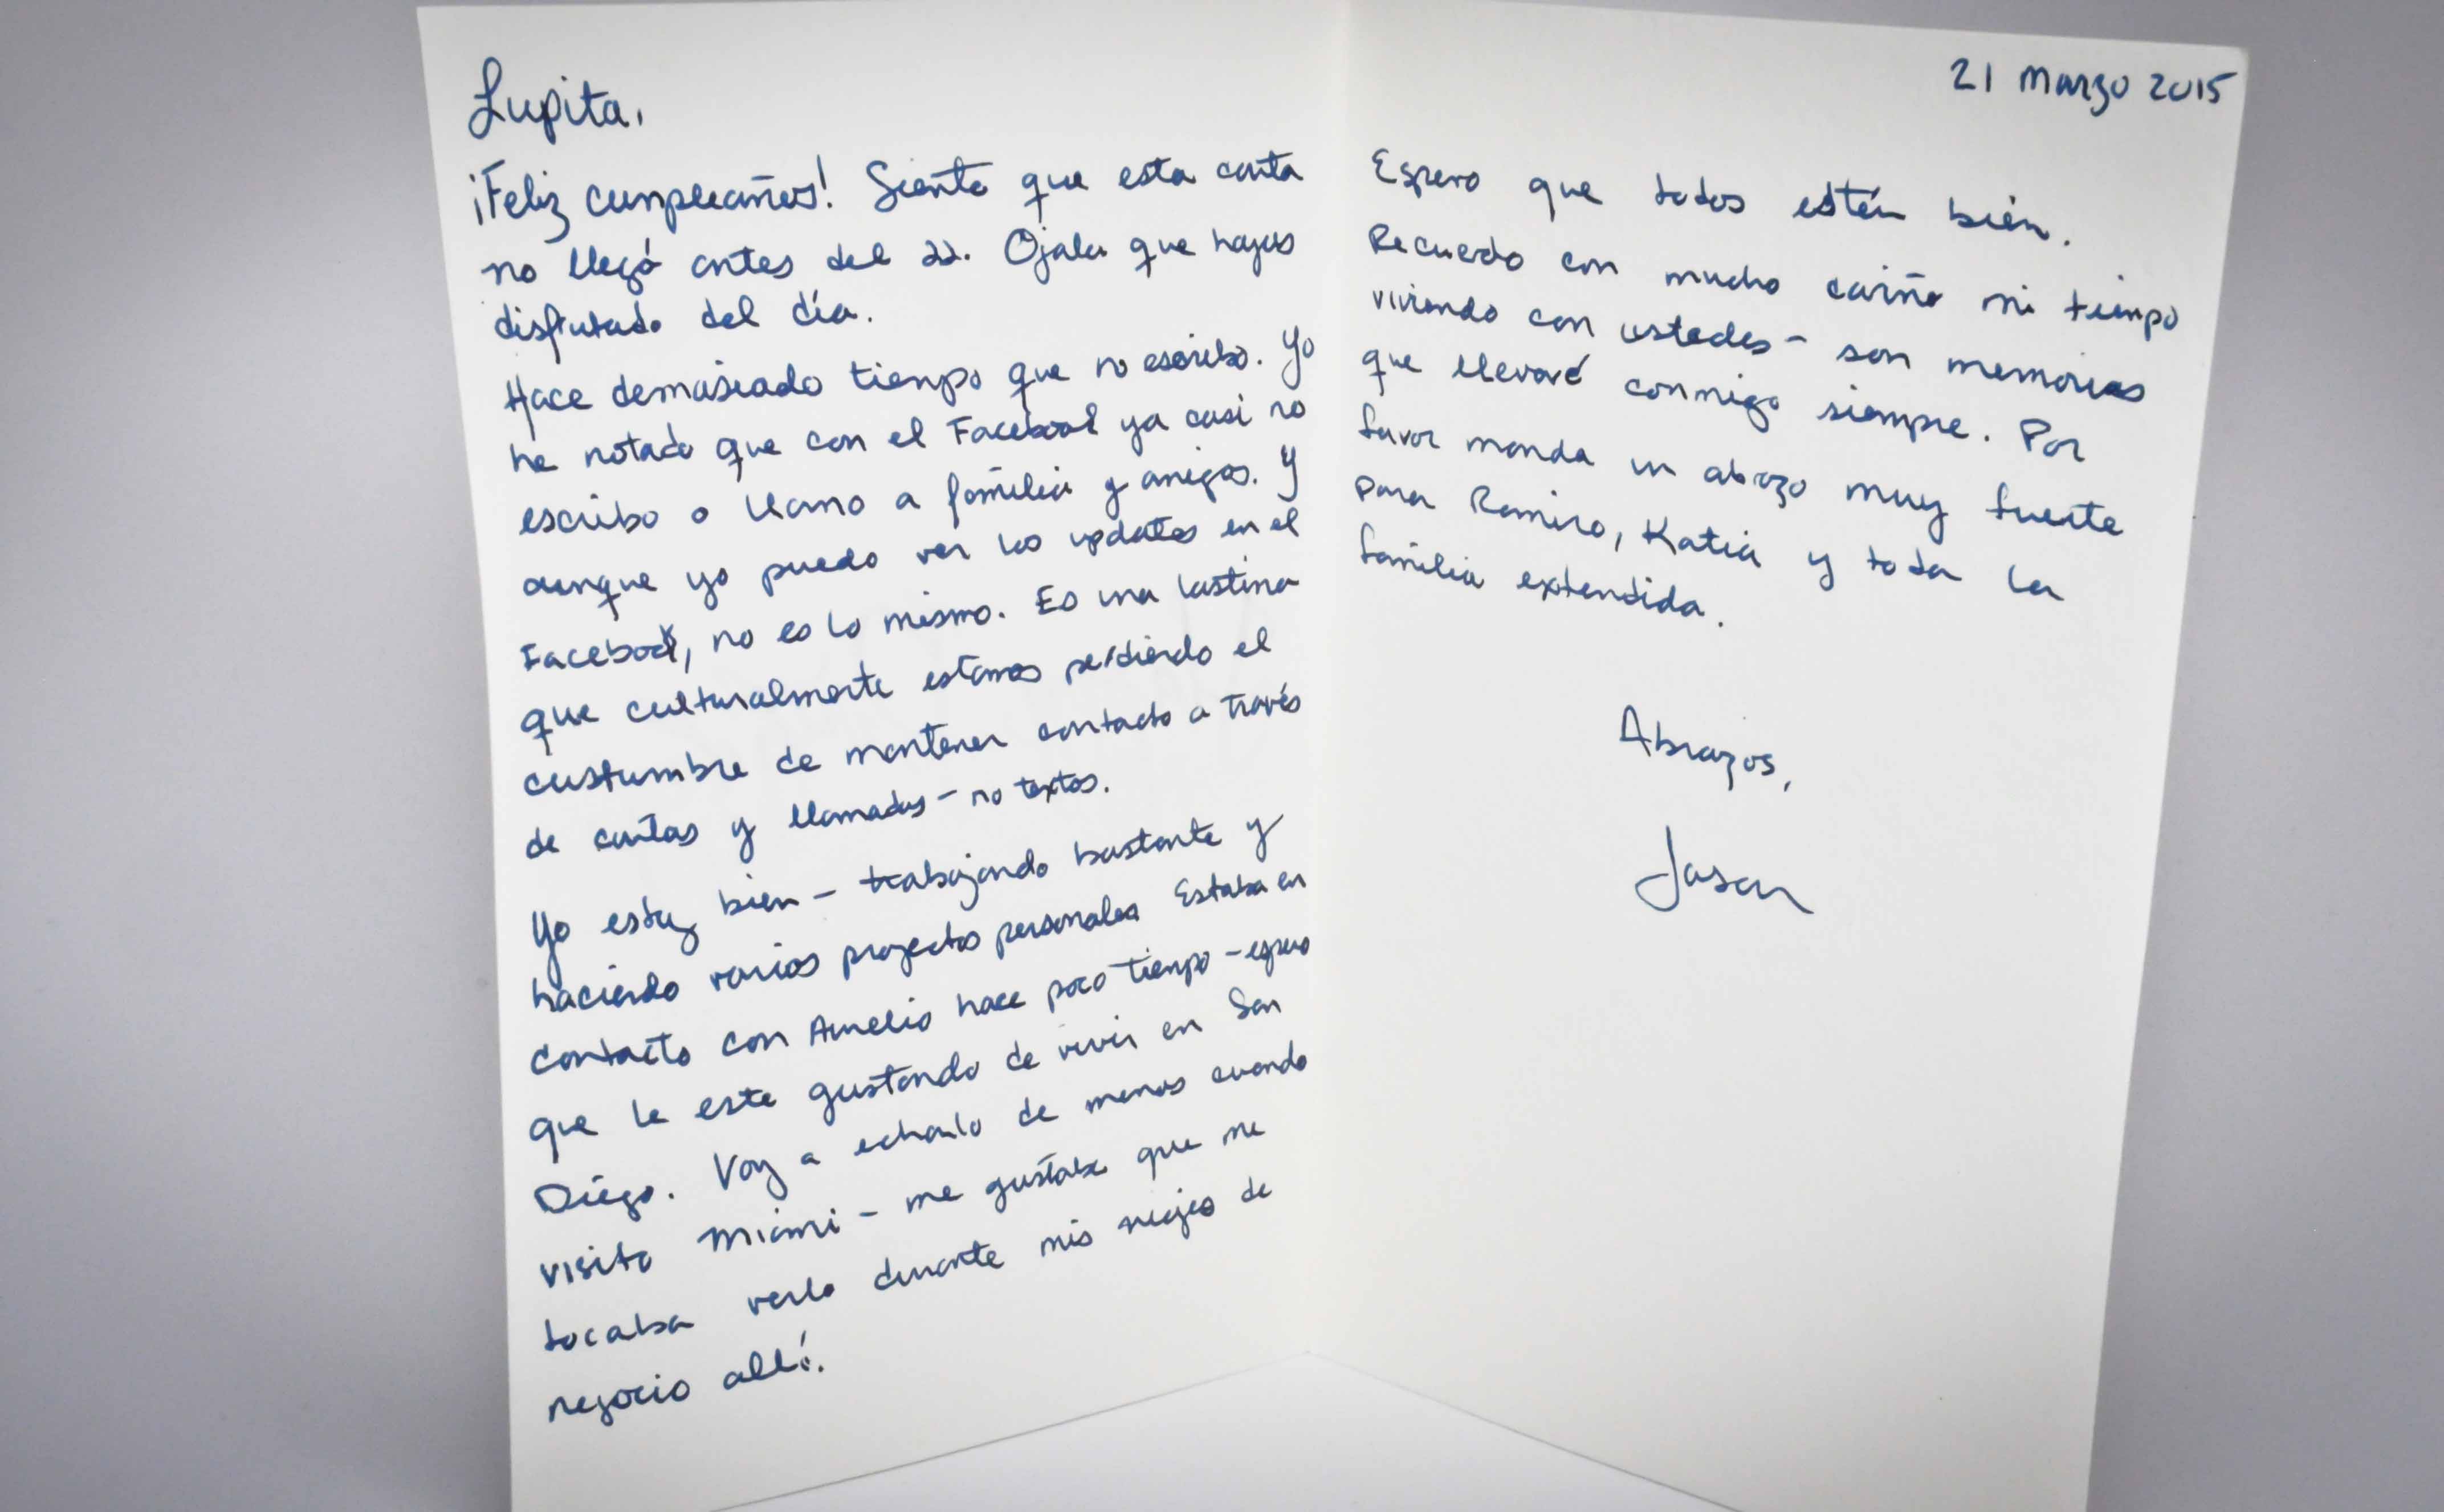 Lupita,
¡Feliz cumpleaños! Siento que esta carta
no llegó antes del 22. Ojala que hayas
disfrutado del día.
Hace demasiado tiempo que no escribo. Yo
he notado que con el Facebook ya casi no
escribo o llamo a familia y amigos. Y
aunque yo puedo ver los updates en el
Facebook, no es lo mismo. Es una lastima
que culturalmente estamos perdiendo el
custumbre de mantener contacto a través
de cartas y llamadas - no textos.
Yo estoy bien - trabajando bastante y
haciendo varios projectos personales Estaba en
contacto con Aurelio hace poco tiempo - espero
que le este gustando de vivir en San
Diego. Voy a echarlo de menos cuando
visito Miami - me gustaba que me
tocaba verlo durante mis viajes de
negocio allí.
21 Marzo 2015
Espero que todos estén bién.
Recuerdo con mucho cariño mi tiempo
viviendo con ustedes - son memorias
que llevaré conmigo siempre. Por
favor manda un abrazo muy fuerte
para Ramiro, Katia y toda la
familia extendida.
Abrazos,
Jason